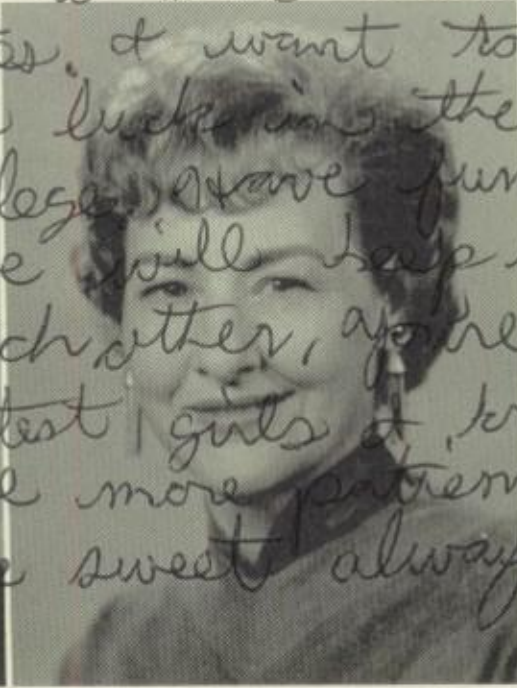 s. I want to
luck in the
lege. Have fun
e will keep
ch other, you're
test girls I k
e more patien
e sweet always